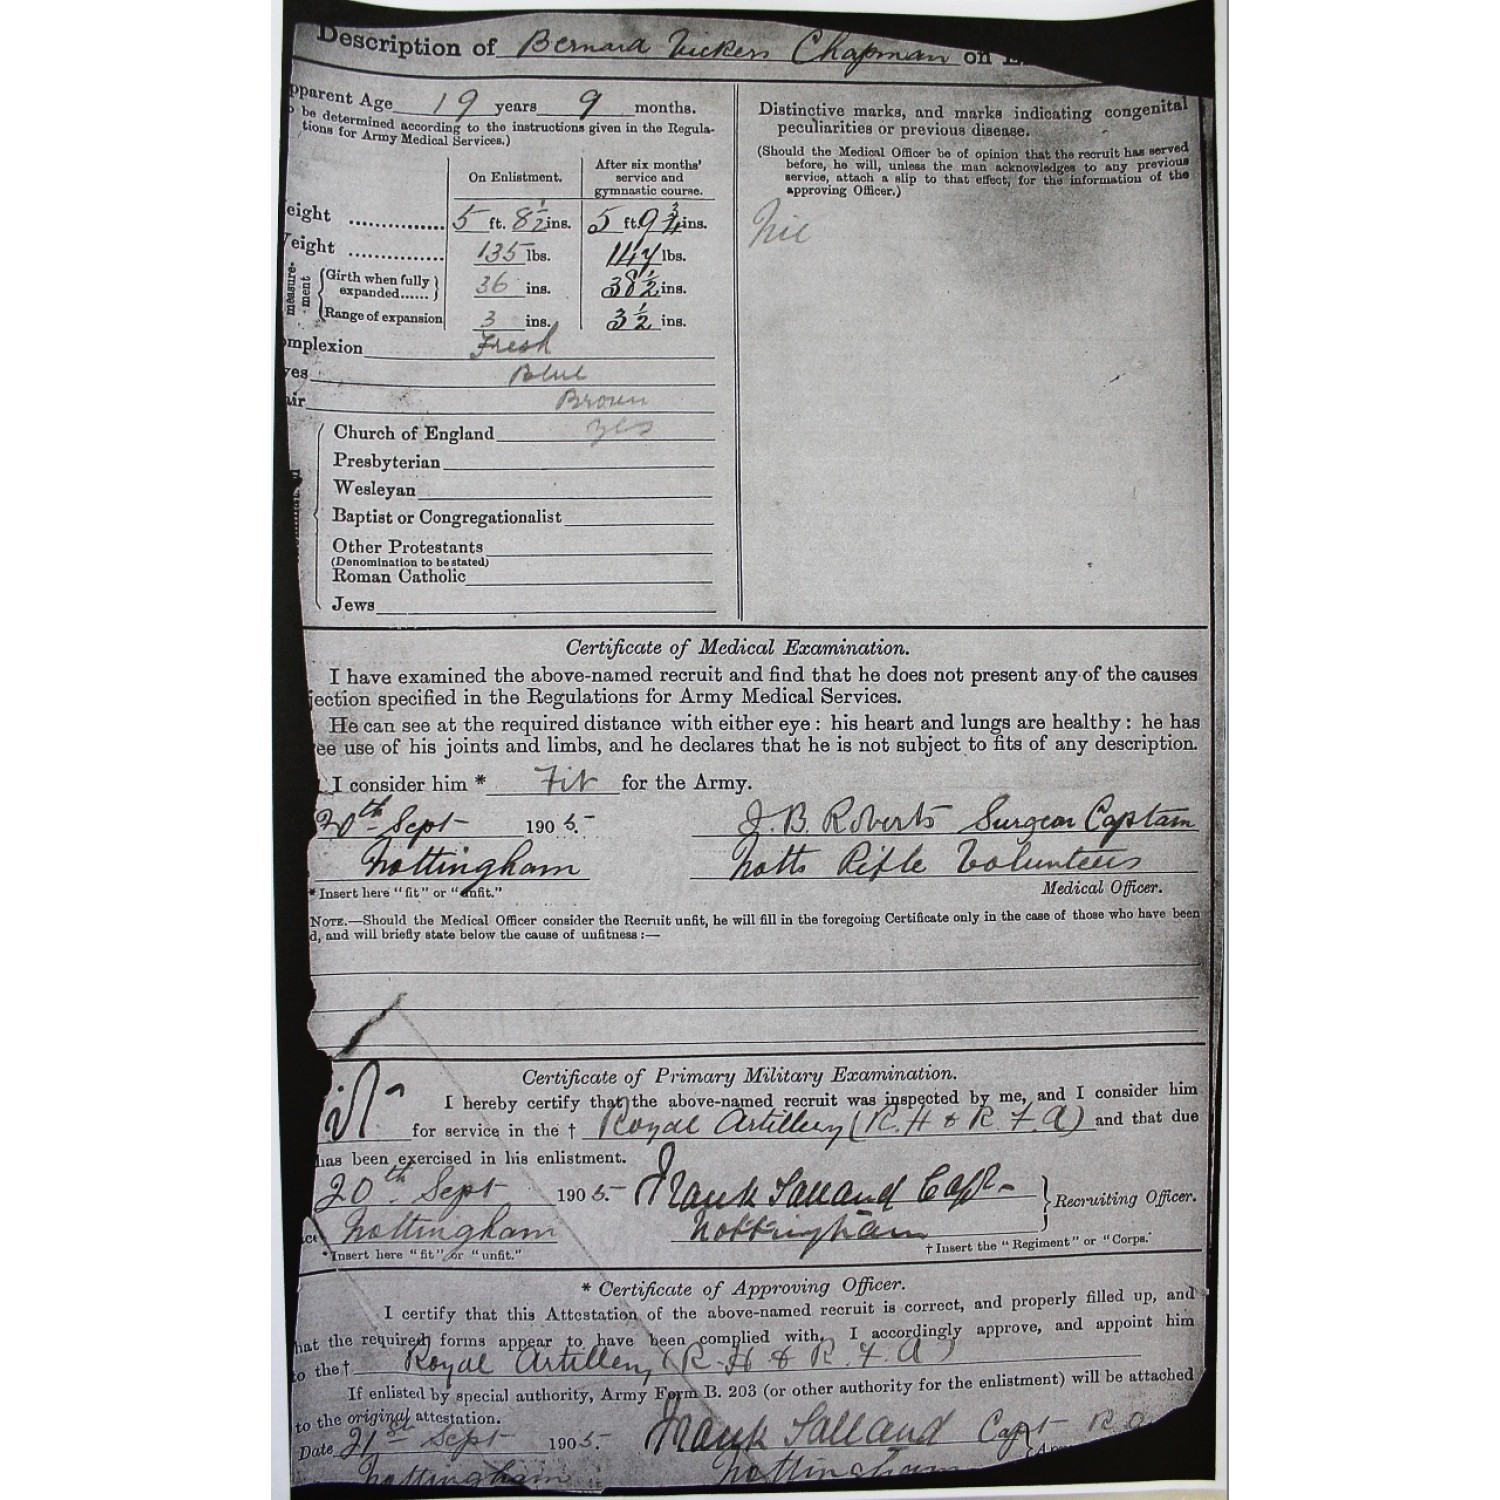 Description of Bernard Vickers Chapman on
pparent Age 19 years 9 months.
be determined according to the instructions given in the Regula-
tions for Army Medical Services.)
On Enlistment.
After six months'
service and
gymnastic course.
eight ............... 5 ft. 8½ ins. 5 ft. 9¾ ins.
eight ............... 135 lbs. 147 lbs.
measure-
ment
Girth when fully
expanded...... 36 ins. 38½ ins.
Range of expansion 3 ins. 3½ ins.
omplexion Fresh
yes Blue
air Brown
Church of England yes
Presbyterian
Wesleyan
Baptist or Congregationalist
Other Protestants
(Denomination to be stated)
Roman Catholic
Jews
Distinctive marks, and marks indicating congenital
peculiarities or previous disease.
(Should the Medical Officer be of opinion that the recruit has served
before, he will, unless the man acknowledges to any previous
service, attach a slip to that effect, for the information of the
approving Officer.)
Nil
Certificate of Medical Examination.
I have examined the above-named recruit and find that he does not present any of the causes
jection specified in the Regulations for Army Medical Services.
He can see at the required distance with either eye : his heart and lungs are healthy : he has
ee use of his joints and limbs, and he declares that he is not subject to fits of any description.
I consider him * Fit for the Army.
20th Sept 1905. J. B. Roberts Surgeon Captain
Nottingham Notts Rifle Volunteers
* Insert here "fit" or "unfit." Medical Officer.
NOTE.—Should the Medical Officer consider the Recruit unfit, he will fill in the foregoing Certificate only in the case of those who have been
d, and will briefly state below the cause of unfitness :—
Certificate of Primary Military Examination.
I hereby certify that the above-named recruit was inspected by me, and I consider him
for service in the † Royal Artillery (R. H & R. F. A) and that due
has been exercised in his enlistment.
20th Sept 1905. Frank Salland Capt.
Recruiting Officer.
Nottingham Nottingham
* Insert here "fit" or "unfit." † Insert the "Regiment" or "Corps."
* Certificate of Approving Officer.
I certify that this Attestation of the above-named recruit is correct, and properly filled up, and
hat the required forms appear to have been complied with. I accordingly approve, and appoint him
o the † Royal Artillery (R. H & R. F. A)
If enlisted by special authority, Army Form B. 203 (or other authority for the enlistment) will be attached
to the original attestation.
Date 21st Sept 1905. Frank Salland Capt R.A
Nottingham Nottingham